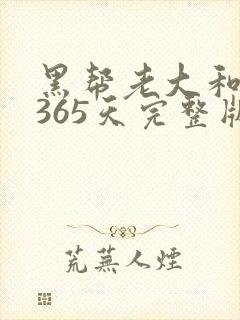 黑帮老大和
365天完整版
荒蕪人煙